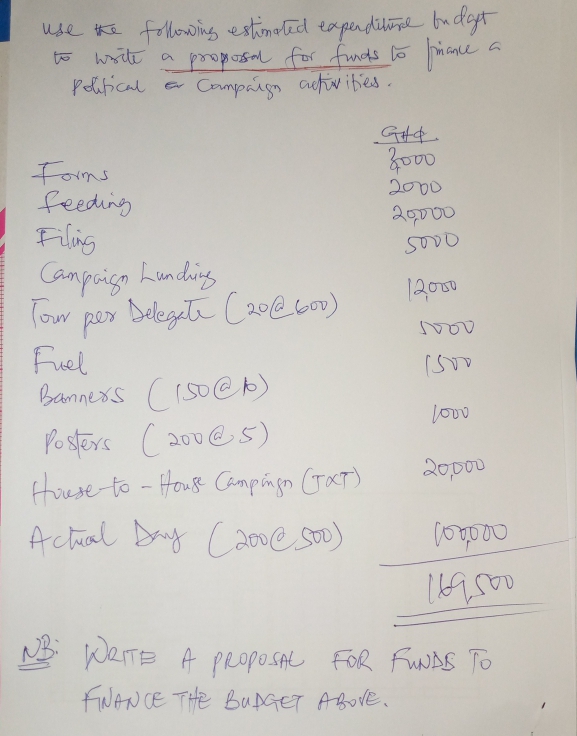 use the following estimated expenditure budget
to write a proposal for funds to finance a
Political Campaign activities.
GH¢
Forms 3,000
Feeding 2000
Filing 20,000
Campaign Lunching 5000
Tour per Delegate (20@600) 12,000
Fuel 5000
Banners (150@10) 1500
Posters (200@5) 1000
House-to-House Campaign (TXT) 20,000
Actual Day (200@500) 100,000
169,500
NB: WRITE A PROPOSAL FOR FUNDS TO
FINANCE THE BUDGET ABOVE.